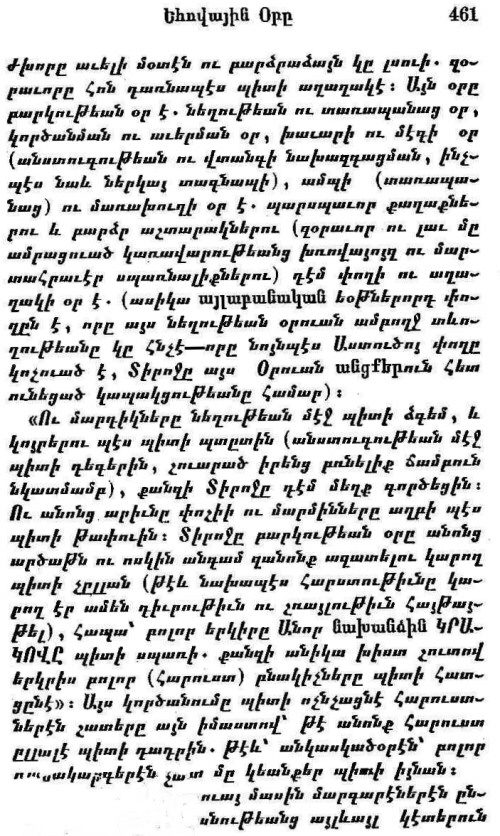 Եհովային Օրը 461
ժխորը աւելի մօտէն ու բարձրաձայն կը լսուի. զօ-
րաւորը հոն դառնապէս պիտի աղաղակէ: Այն օրը
բարկութեան օր է. նեղութեան ու տառապանաց օր,
կործանման ու աւերման օր, խաւարի ու մէգի օր
(անստուգութեան ու վտանգի նախազգացման, ինչ-
պէս նաև ներկայ տագնապի), ամպի (տառապա-
նաց) ու մառախուղի օր է. պարսպաւոր քաղաքնե-
րու և բարձր աշտարակներու (զօրաւոր ու լաւ մը
ամրացուած կառավարութեանց խռովայոյզ ու մար-
տահրաւէր սպառնալիքներու) դէմ փողի ու աղա-
ղակի օր է. (ասիկա այլաբանական եօթներորդ փո-
ղըն է, որը այս նեղութեան օրուան ամբողջ տևո-
ղութեանը կը հնչէ—որը նոյնպէս Աստուծոյ փողը
կոչուած է, Տիրոջը այս Օրուան անցքերուն հետ
ունեցած կապակցութեանը համար):
«Ու մարդիկները նեղութեան մէջ պիտի ձգեմ, և
կոյրերու պէս պիտի պտըտին (անստուգութեան մէջ
պիտի դեգերին, շուարած իրենց բռնելիք ճամբուն
նկատմամբ), քանզի Տիրոջը դէմ մեղք գործեցին:
Ու անոնց արիւնը փոշիի ու մարմինները աղբի պէս
պիտի թափուին: Տիրոջը բարկութեան օրը անոնց
արծաթն ու ոսկին անգամ զանոնք ազատելու կարող
պիտի չըլլան (թէև նախապէս հարստութիւնը կա-
րող էր ամեն դիւրութիւն ու շռայլութիւն հայթայ-
թել), հապա՝ բոլոր երկիրը Անոր նախանձին ԿՐԱ-
ԿՈՎԸ պիտի սպառի. քանզի անիկա խիստ շուտով
երկրիս բոլոր (հարուստ) բնակիչները պիտի հատ-
ցընէ»: Այս կործանումը պիտի ոչնչացնէ հարուստ-
ներէն շատերը այն իմաստով՝ թէ անոնք հարուստ
ըլլալէ պիտի դադրին. թէև՝ անկասկածօրէն՝ բոլոր
շատ մը կեանքեր պիտի իյնան:
մասին մարգարէներէն ըն-
այլևայլ կէտերուն